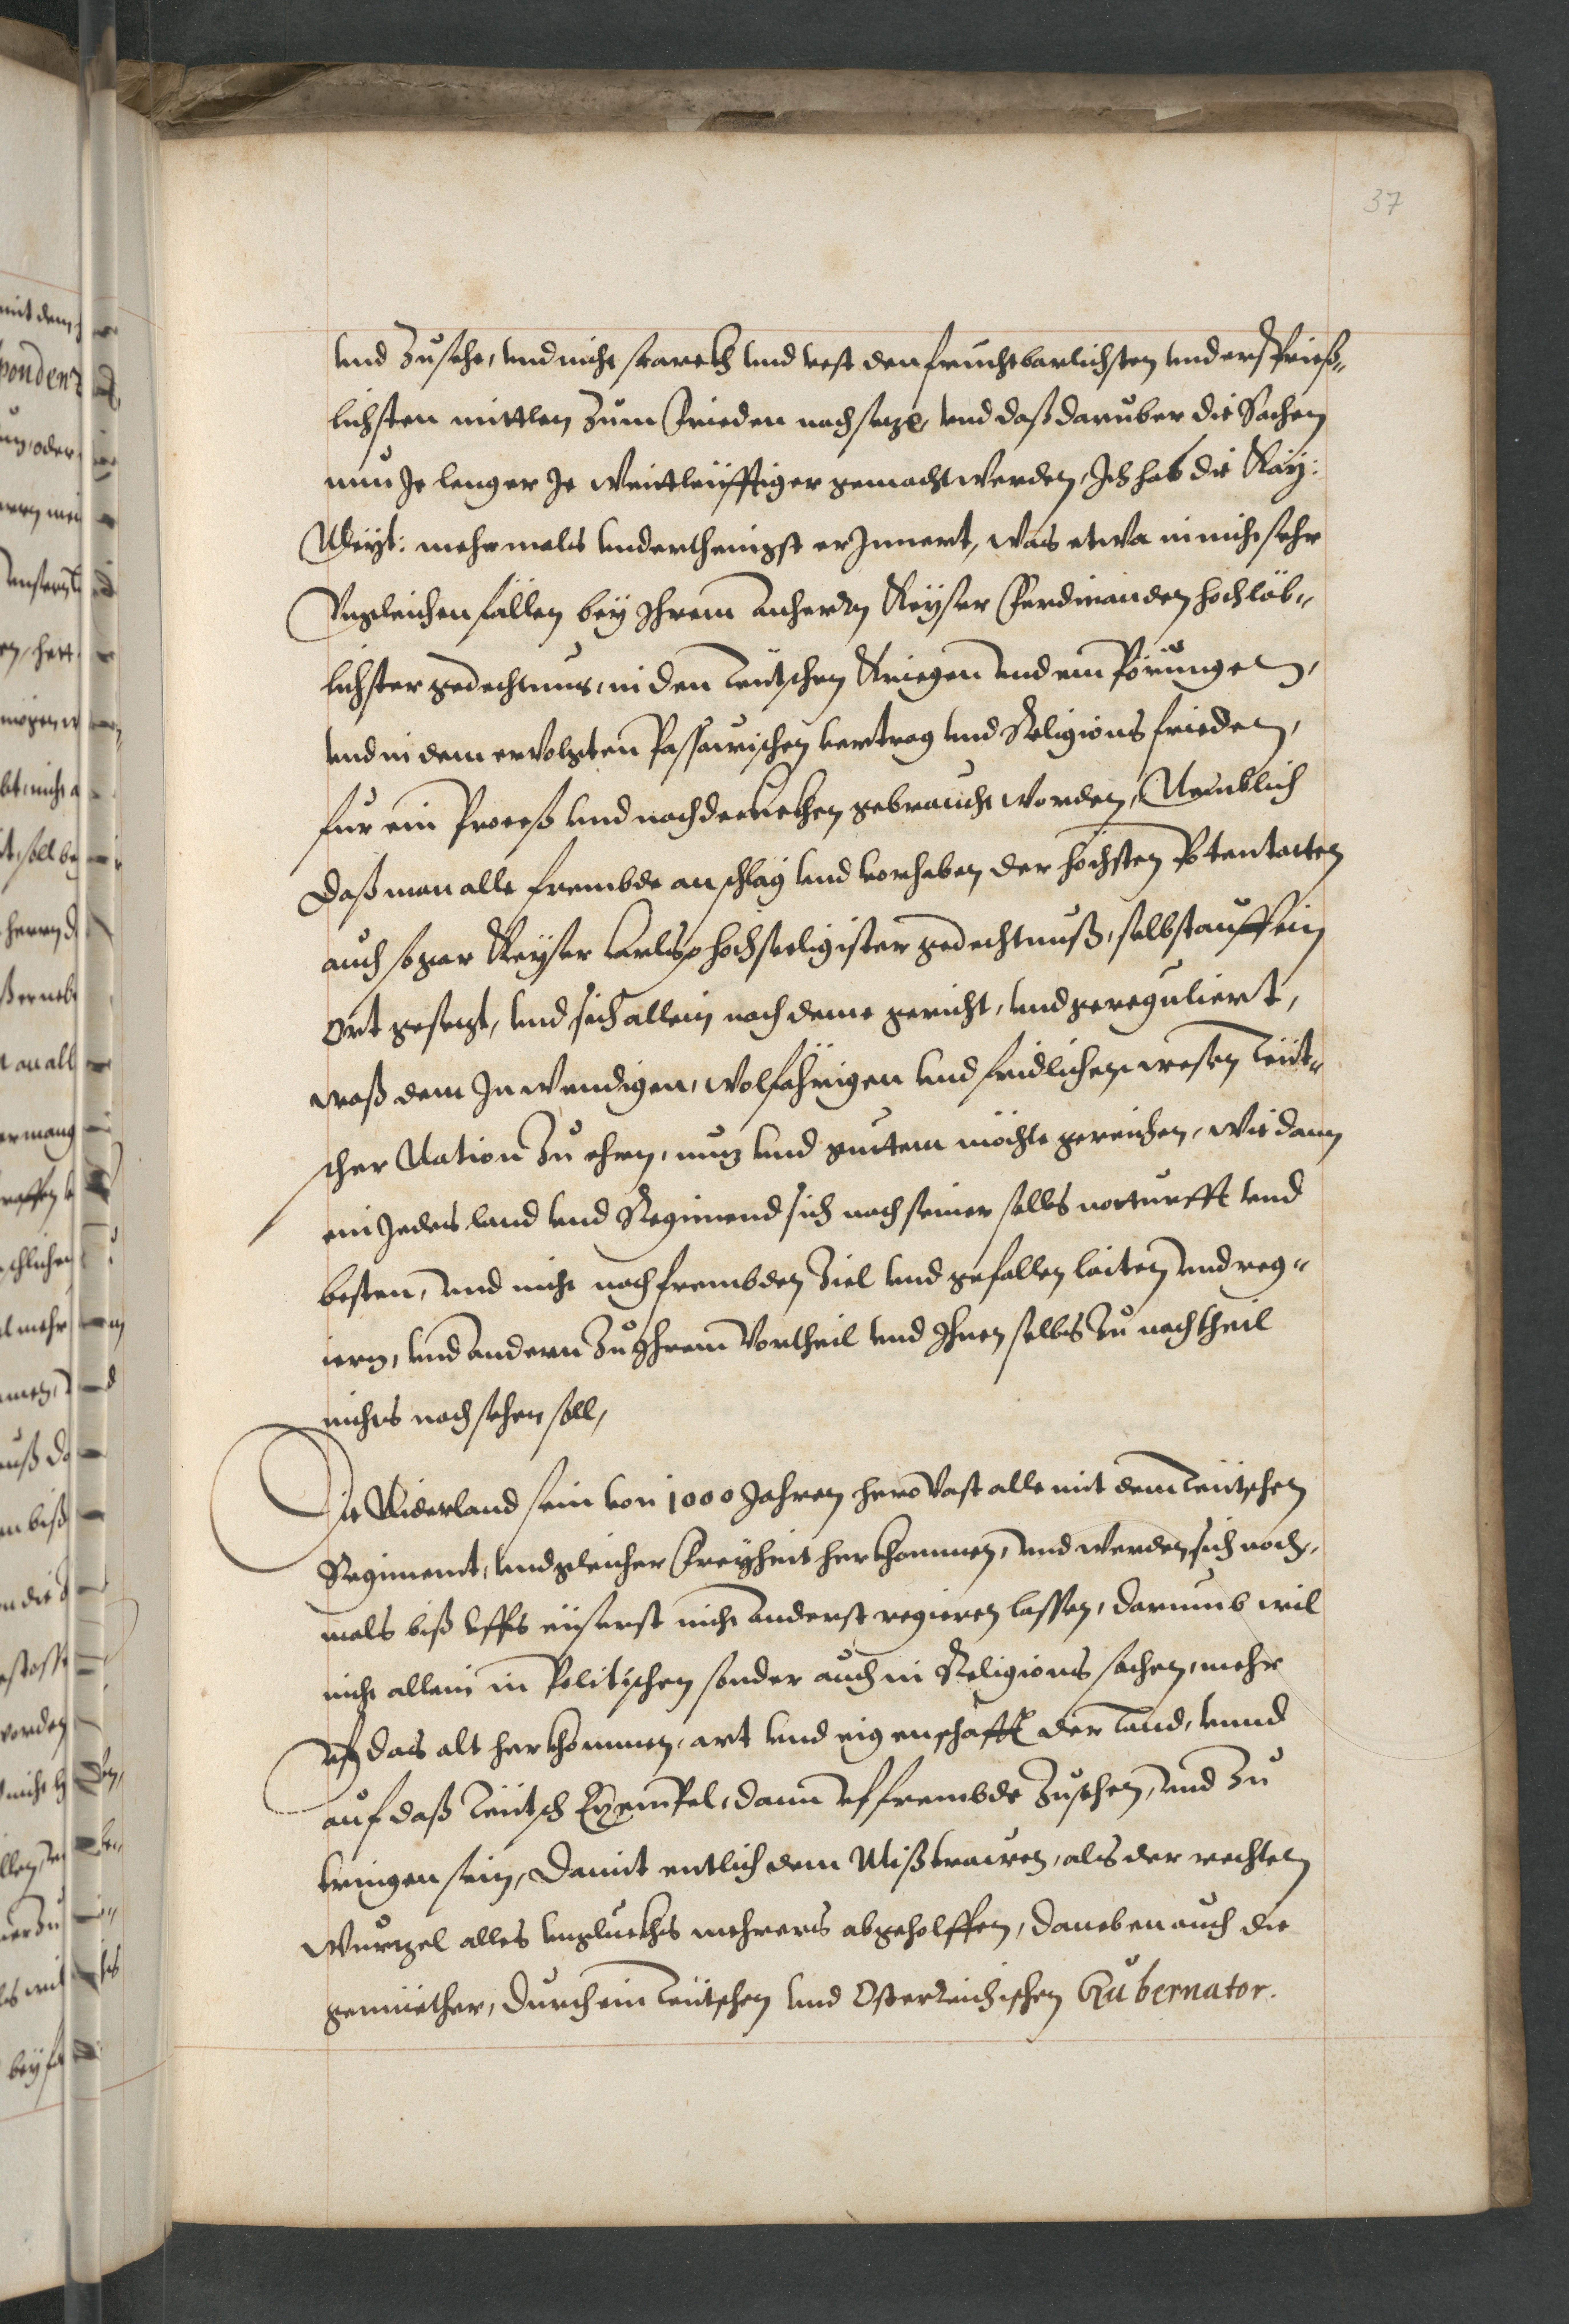 37
und zusehe, und nicht starckh und vest den fruchtbarlichsten und erschprieß„
lichsten mittlen zum frieden nachsezе, und daß daruber die Sachen
nuu Je lenger Je weittleüfftiger gemacht werden, Ich hab die Kay:
Meyt: mehrmals underthenigst erJnnert, was etwa in nicht sehr
Ungleichen fällen bey Ihrem Anherrn Keyser Ferdinanden hochlöb„
lichster gedechtnus, in den Teütschen Kriegen und empörungen,
und in dem ervolgten Passauischen vertrag und Religions frieden,
fur ein Proceß und nachdenckhen gebraucht worden, Nemblich
Daß man alle frembde anschlag und vorhaben der höchsten Potentatten
auch sogar Keyser Carls hochseeligister gedechtnuß, selbst auff ein
ort gesezt, und sich allein nach deme gericht, und gereguliert,
waß dem Inwendigen, wolfährigen und fridlichen wesen Teüt„
scher Nation zu ehren, nuz und guttem möchte gereichen, wie dann
ein Jedes land und Regimend sich nach seiner selbs notturfft und
besten, und nicht nach frembden Ziel und gefallen laiten und reg„
iern, und andern zu Ihrem Vortheil und Ihnen selbs zu nachtheil
nichts nachsehen soll,
Die Niderland sein von 1000 Jahren hero vast alle mit dem Teütschen
Regiment, und gleicher Freyheit herkhommen, und werden sich noch„
mals biß uffs eüserst nicht anderst regieren lassen, darumb wil
nicht allein in Politischen sonder auch in Religions sachen, mehr
uf das alt herkhommen, art und eigenschafft der Land, unnd
auf daß Teütsch Exempel, dann uf frembde zusehen, und zu
tringen sein, Damit entlich dem Mißtrauen, als der rechten
Wurzel alles unglückhs mehrers abgeholffen, daneben auch die
gemüether, durch ein Teütschen und Osterreichischen Gubernator.